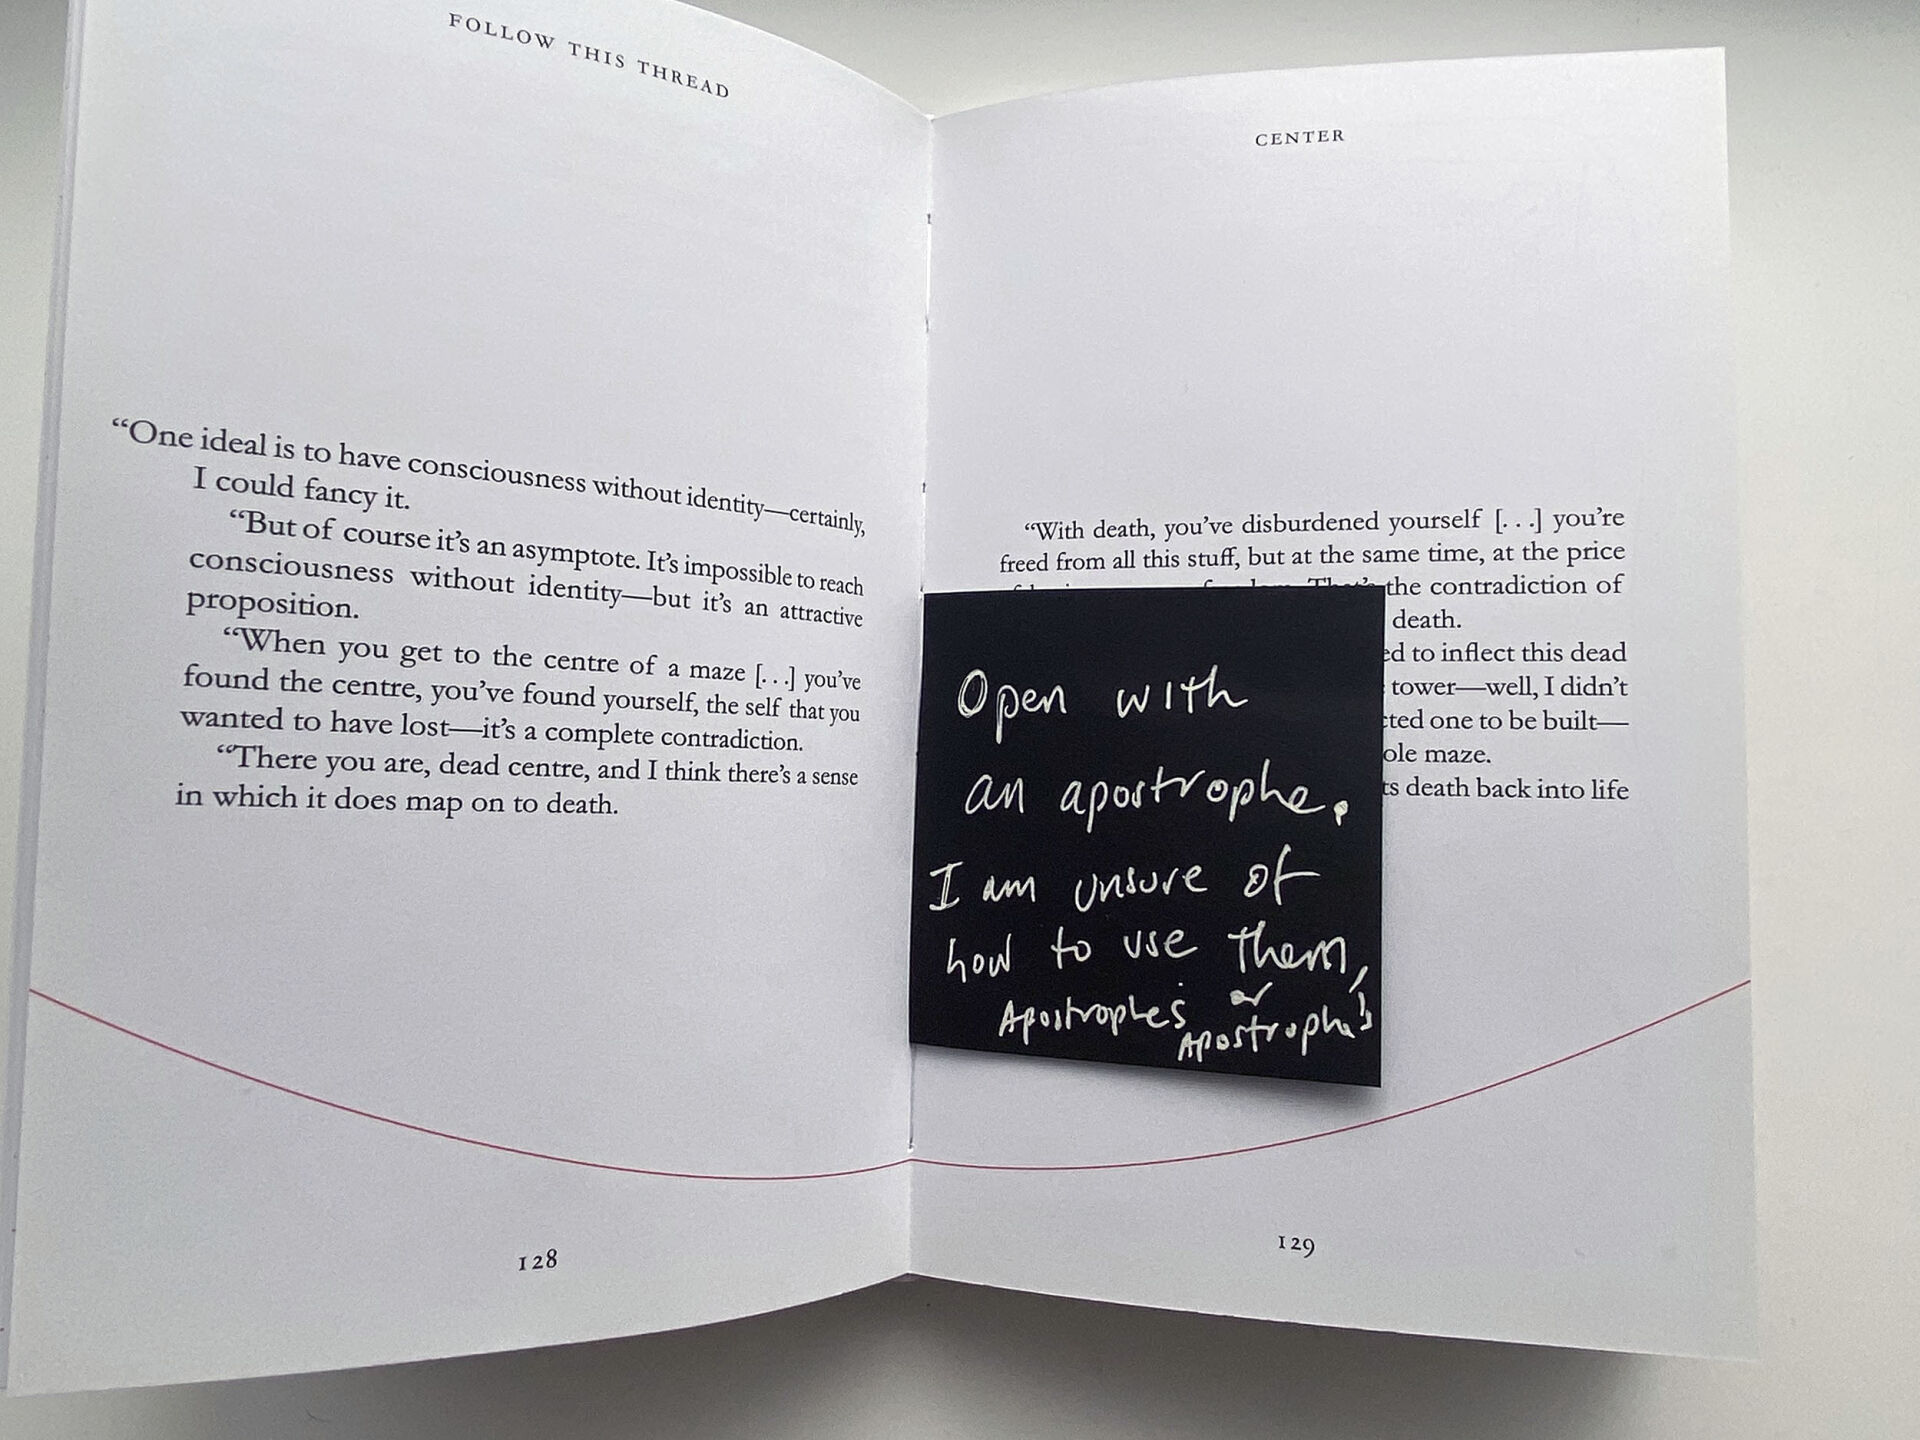 FOLLOW THIS THREAD
“One ideal is to have consciousness without identity—certainly,
I could fancy it.
“But of course it’s an asymptote. It’s impossible to reach
consciousness without identity—but it’s an attractive
proposition.
“When you get to the centre of a maze [. . .] you’ve
found the centre, you’ve found yourself, the self that you
wanted to have lost—it’s a complete contradiction.
“There you are, dead centre, and I think there’s a sense
in which it does map on to death.
128
CENTER
“With death, you’ve disburdened yourself [. . .] you’re
freed from all this stuff, but at the same time, at the price
the contradiction of
death.
to inflect this dead
tower—well, I didn’t
one to be built—
maze.
death back into life
Open with
an apostrophe.
I am unsure of
how to use them,
Apostrophes or
Apostrophe's
129